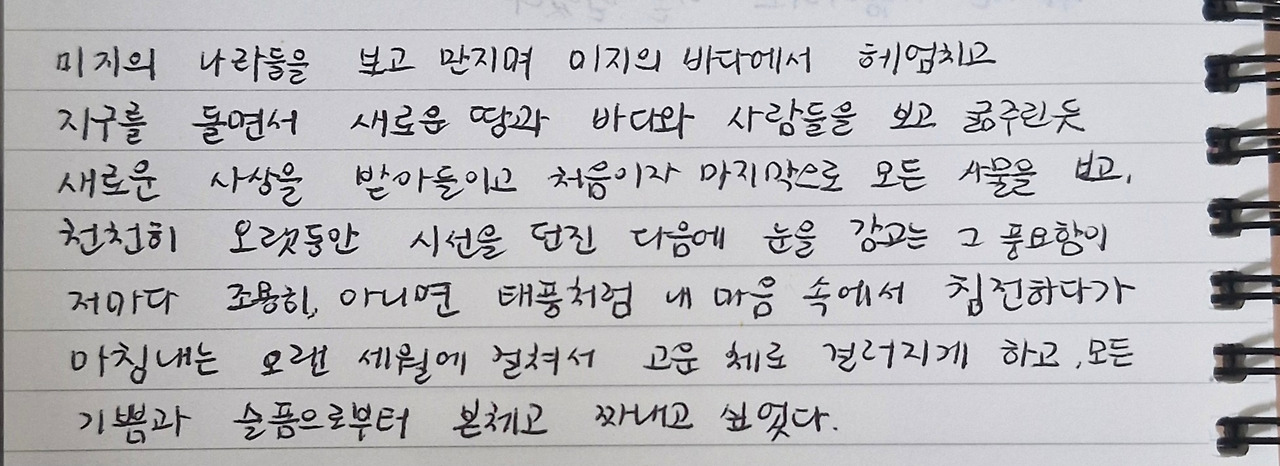 미지의 나라들을 보고 만지며 미지의 바다에서 헤엄치고
지구를 돌면서 새로운 땅과 바다와 사람들을 보고 굶주린듯
새로운 사상을 받아들이고 처음이자 마지막으로 모든 사물을 보고,
천천히 오랫동안 시선을 던진 다음에 눈을 감고는 그 풍요함이
저마다 조용히, 아니면 태풍처럼 내 마음 속에서 침전하다가
마침내는 오랜 세월에 걸쳐서 고운 체로 걸러지게 하고, 모든
기쁨과 슬픔으로부터 본체고 짜내고 싶었다.